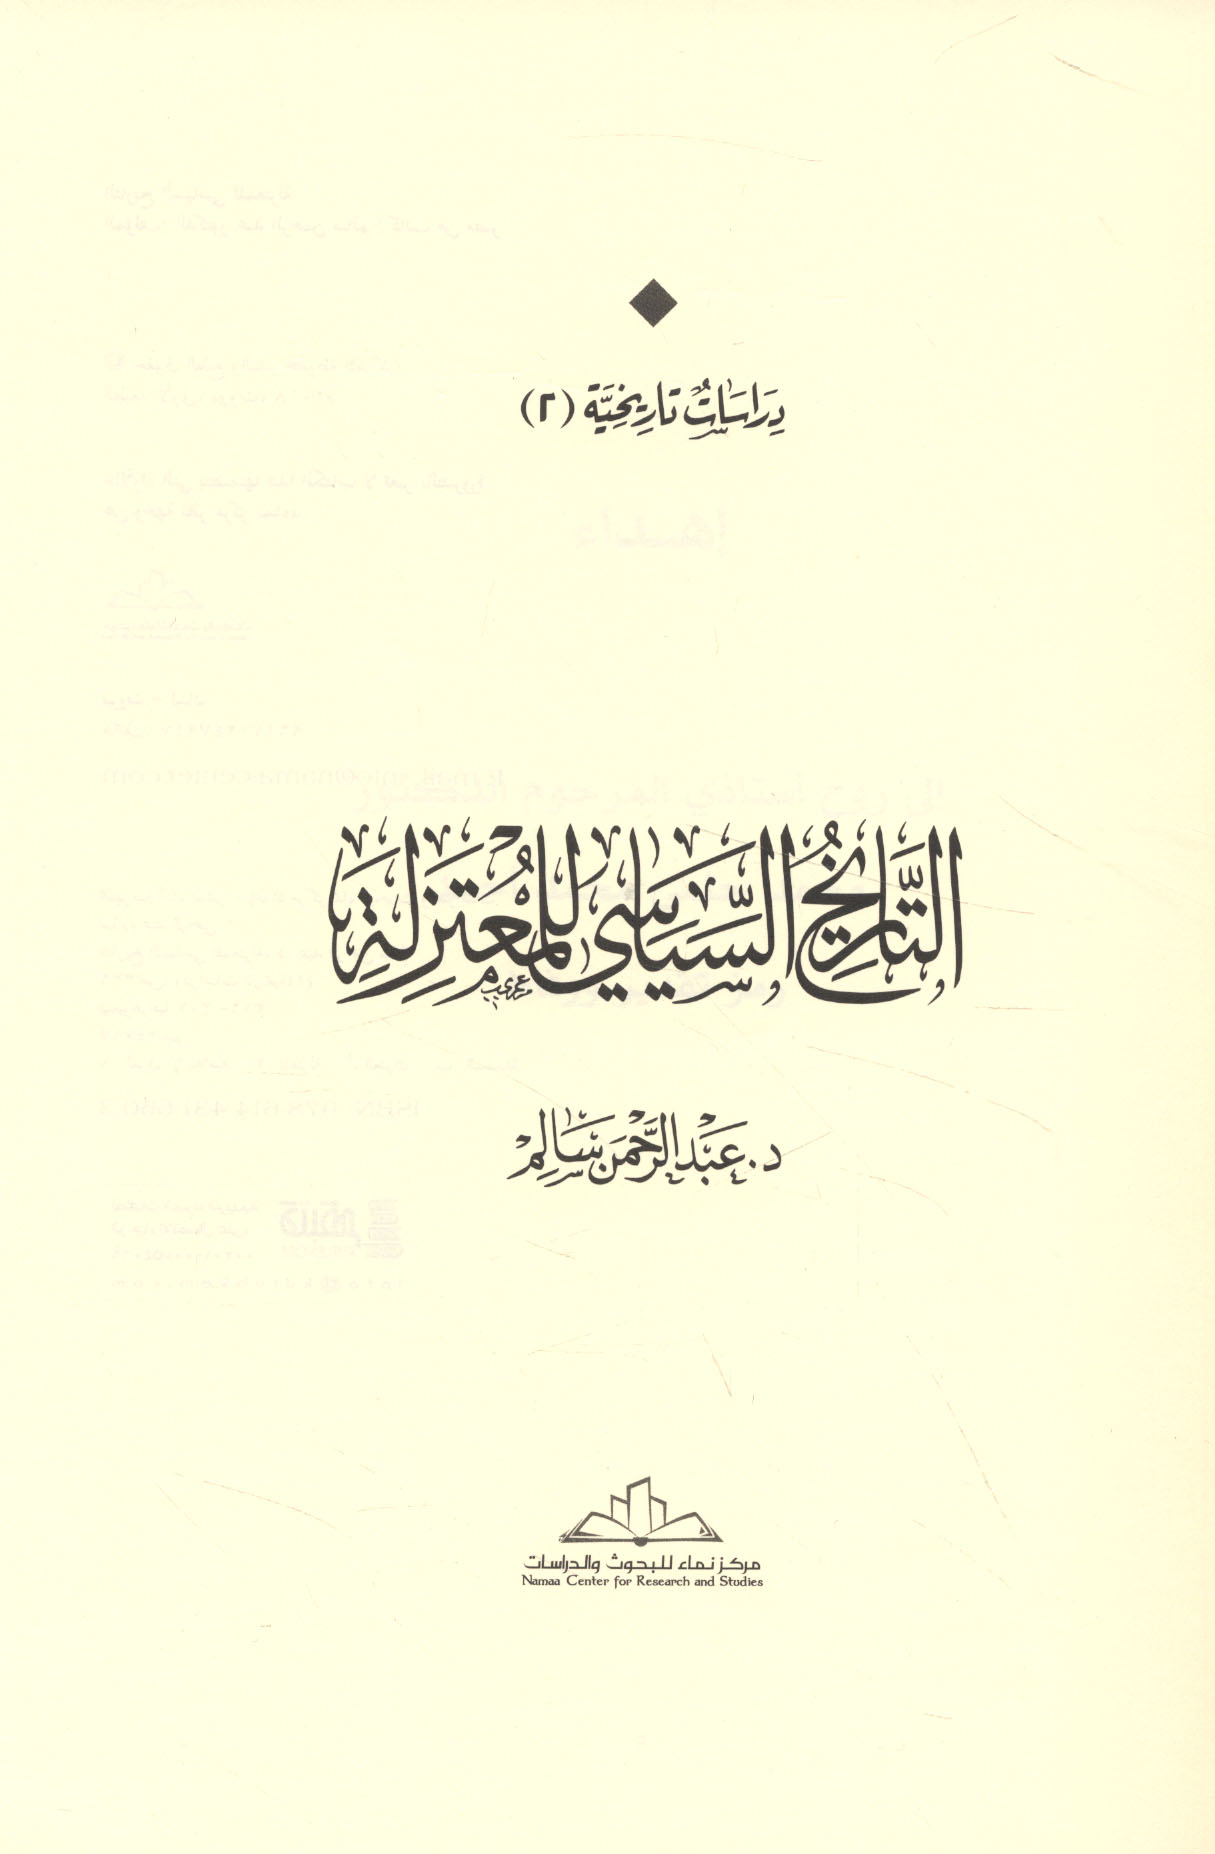 دِرَاسَاتٌ تَارِيخِيَّة (٢)
التَّارِيخُ السِّيَاسِي لِلمُعْتَزِلَةِ
د. عَبْدُ الرَّحْمَن سَالِم
مركز نماء للبحوث والدراسات
Namaa Center for Research and Studies